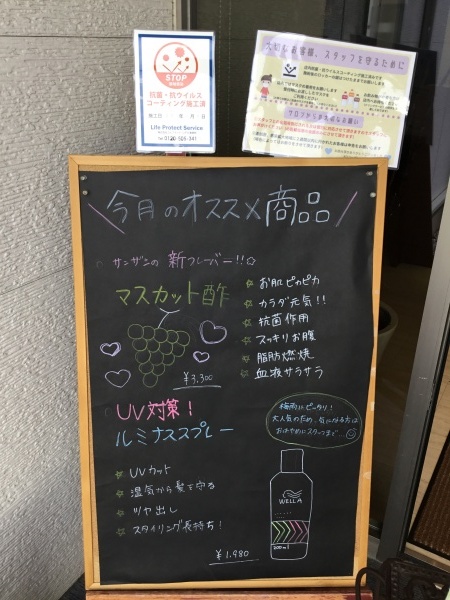 STOP
抗菌・抗ウイルス
コーティング施工済
施工日 年 月 日
Life Protect Service
0120-503-341
大切なお客様、スタッフを守るために
フロントからの大切なお願い
\今月のオススメ商品/
サンザンの新フレーバー!!☆
マスカット酢
☆お肌ピカピカ
☆カラダ元気!!
☆抗菌作用
☆スッキリお腹
☆脂肪燃焼
☆血液サラサラ
¥3,300
UV対策!
ルミナススプレー
梅雨にピッタリ!
大人気のため、気になる方は
おはやめにスタッフまで…
☆UVカット
☆湿気から髪を守る
☆ツヤ出し
☆スタイリング長持ち!
WELLA
200ml
¥1,980